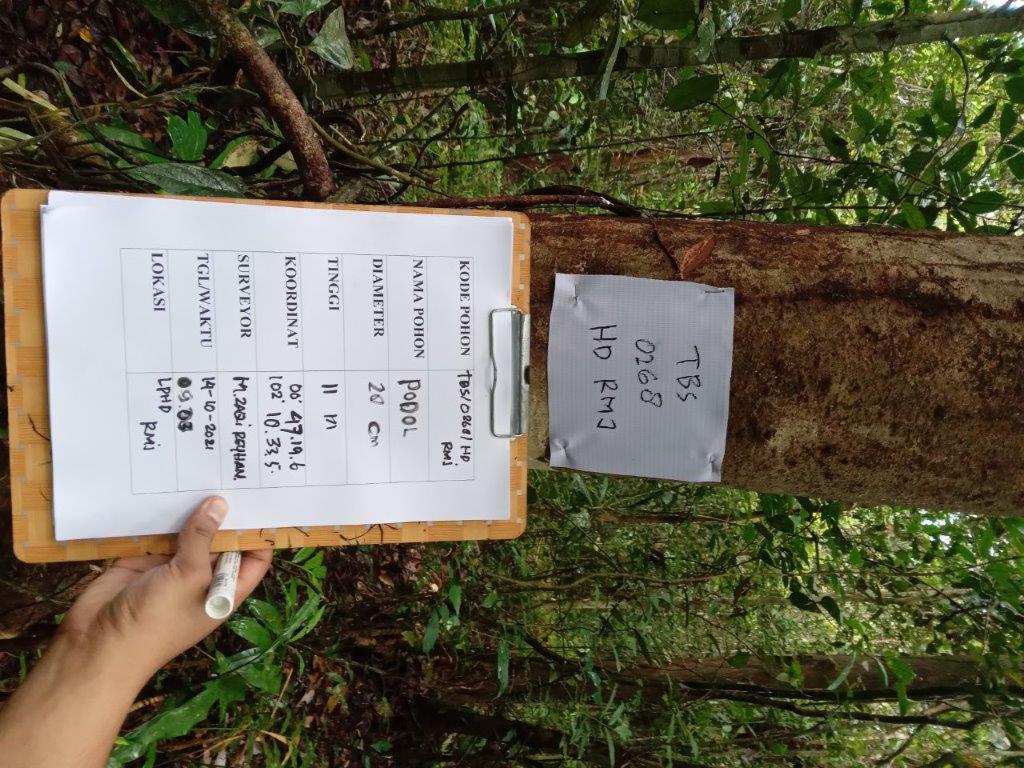 TBS
0268
HD RMJ
KODE POHON TBS/0268/HD
RMJ
NAMA POHON PODOL
DIAMETER 20 cm
TINGGI 11 M
KOORDINAT 00° 47.19.6
102° 10.33.5
SURVEYOR M.ZAQI REYHAN.
TGL/WAKTU 14-10-2021
09.03
LOKASI LPHD
RMJ